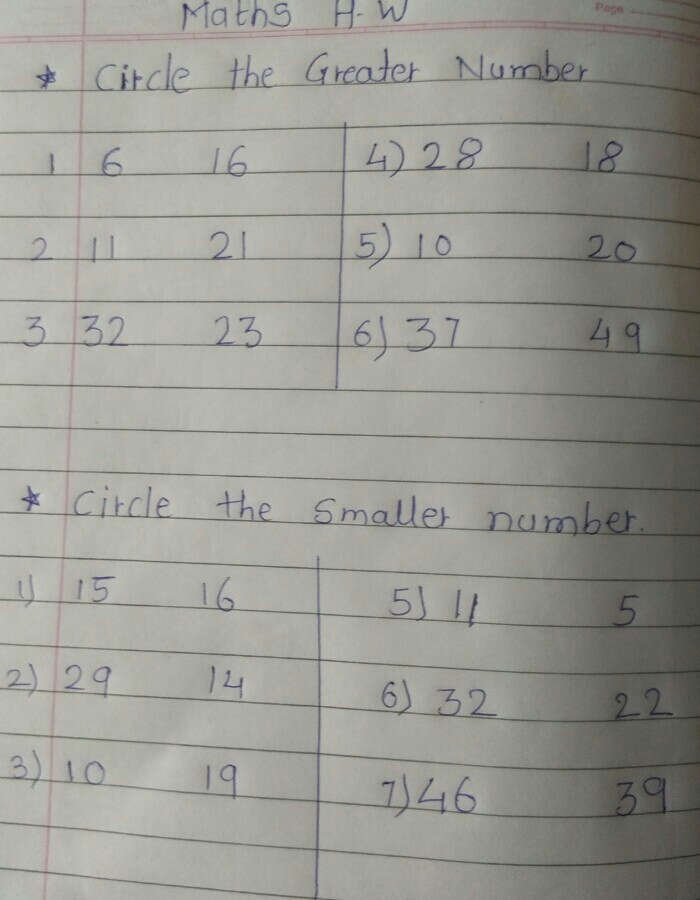 Maths H.W
Page
* Circle the Greater Number
1 6 16 4) 28 18
2 11 21 5) 10 20
3 32 23 6) 37 49
* Circle the Smaller number.
1) 15 16 5) 11 5
2) 29 14 6) 32 22
3) 10 19 7) 46 39